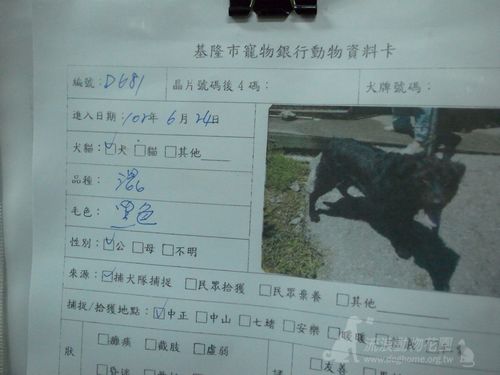 基隆市寵物銀行動物資料卡
編號：D681 晶片號碼後4碼： 犬牌號碼：
進入日期：102年6月24日
犬貓：☑犬 □貓 □其他
品種：混
毛色：黑色
性別：☑公 □母 □不明
來源：☑捕犬隊捕捉 □民眾拾獲 □民眾棄養 □其他
捕捉/拾獲地點：☑中正 □中山 □七堵 □安樂 □暖暖
狀 □癱瘓 □截肢 □虛弱 □友善
□昏迷
流浪動物花園
www.doghome.org.tw